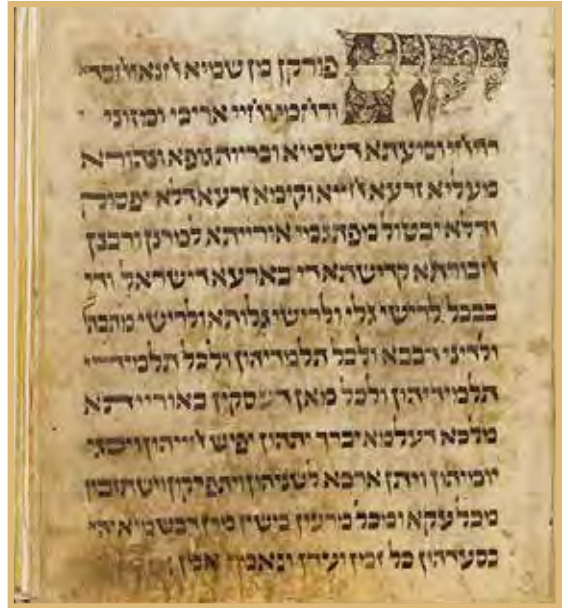 יקום פורקן מן שמיא חנא וחסדא
ורחמי וחיי אריכי ומזוני
רויחי וסיעתא דשמיא ובריות גופא ונהורא
מעליא זרעא חייא וקימא זרעא דלא יפסוק
ודלא יבטול מפתגמי אורייתא למרנן ורבנן
חבורתא קדישתא די בארעא דישראל ודי
בבבל לרישי גלי ולרישי גלותא ולרישי מתיבת
ולדיני דבבא ולכל תלמידיהון ולכל תלמידי
תלמידיהון ולכל מאן דעסקין באורייתא
מלכא דעלמא יברך יתהון יפיש חייהון ויסגי
יומיהון ויתן ארכא לשניהון ויתפרקון וישתזבון
מכל עקא ומכל מרעין בישין מרן דבשמיא יהי
בסעדהון כל זמן ועידן ונאמר אמן